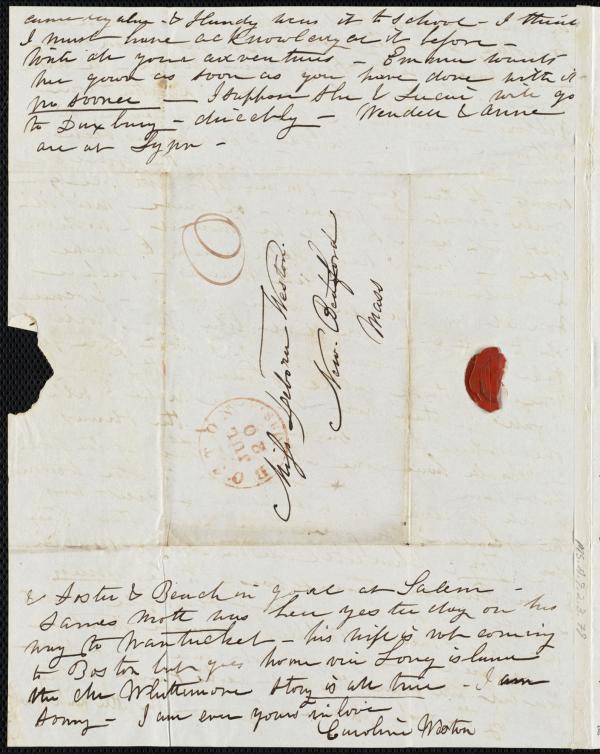 came regular - & Hundy was it to school - I think
I must have acknowledged it before -
Write all your adventures - Emma wants
her gown as soon as you have done with it
no sooner - I suppose she & Lucia will go
to Duxbury - directly - Wendell & Anne
are at Lynn -
Miss Deborah Weston.
New. Bedford
Mass
BOSTON
JUL
20
& Foster & Beach in goal at Salem -
James Mott was here yesterday on his
way to Nantucket - his wife is not coming
to Boston but goes home via Long island
the Whittimore story is all true - I am
sorry - I am ever yours in love
Caroline Weston
MS.A.9.2.3.79